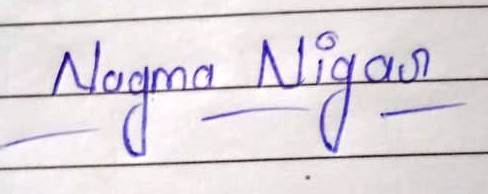 Nagma Nigar